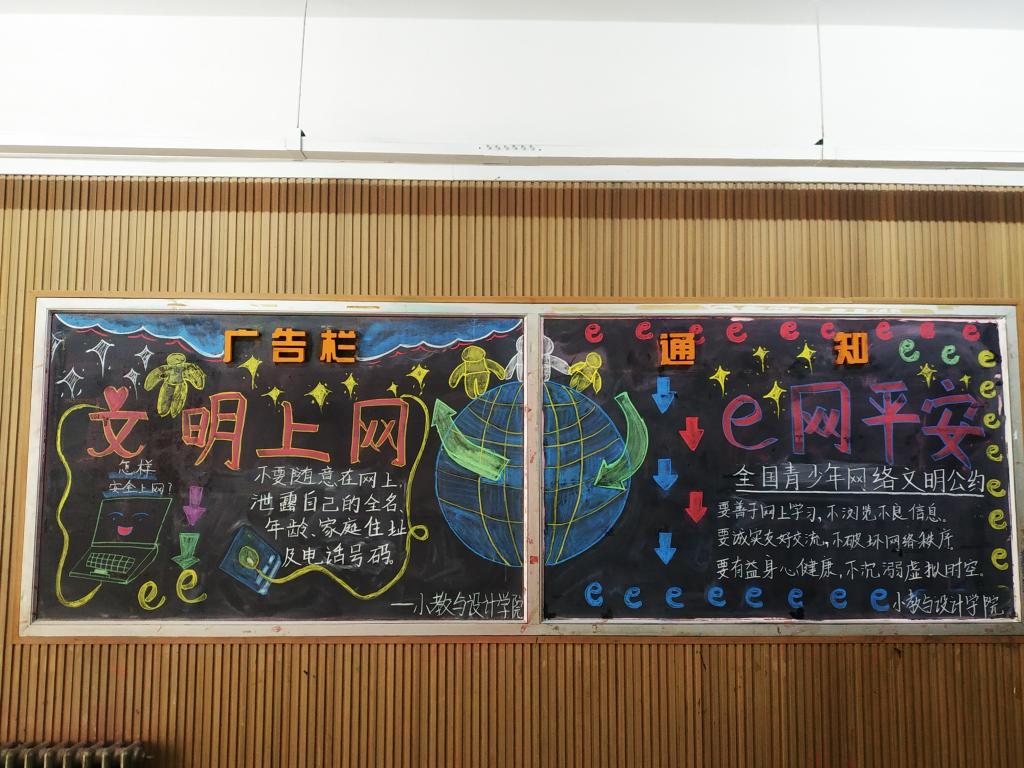 广告栏
文明上网
怎样
安全上网?
不要随意在网上,
泄露自己的全名、
年龄、家庭住址
及电话号码。
e e
—小教与设计学院
通知
e e e e e e e e e
e e e
e网平安
全国青少年网络文明公约
要善于网上学习,不浏览不良信息。
要诚实友好交流,不破坏网络秩序
要有益身心健康,不沉溺虚拟时空。
e e e e e e e e
小教与设计学院